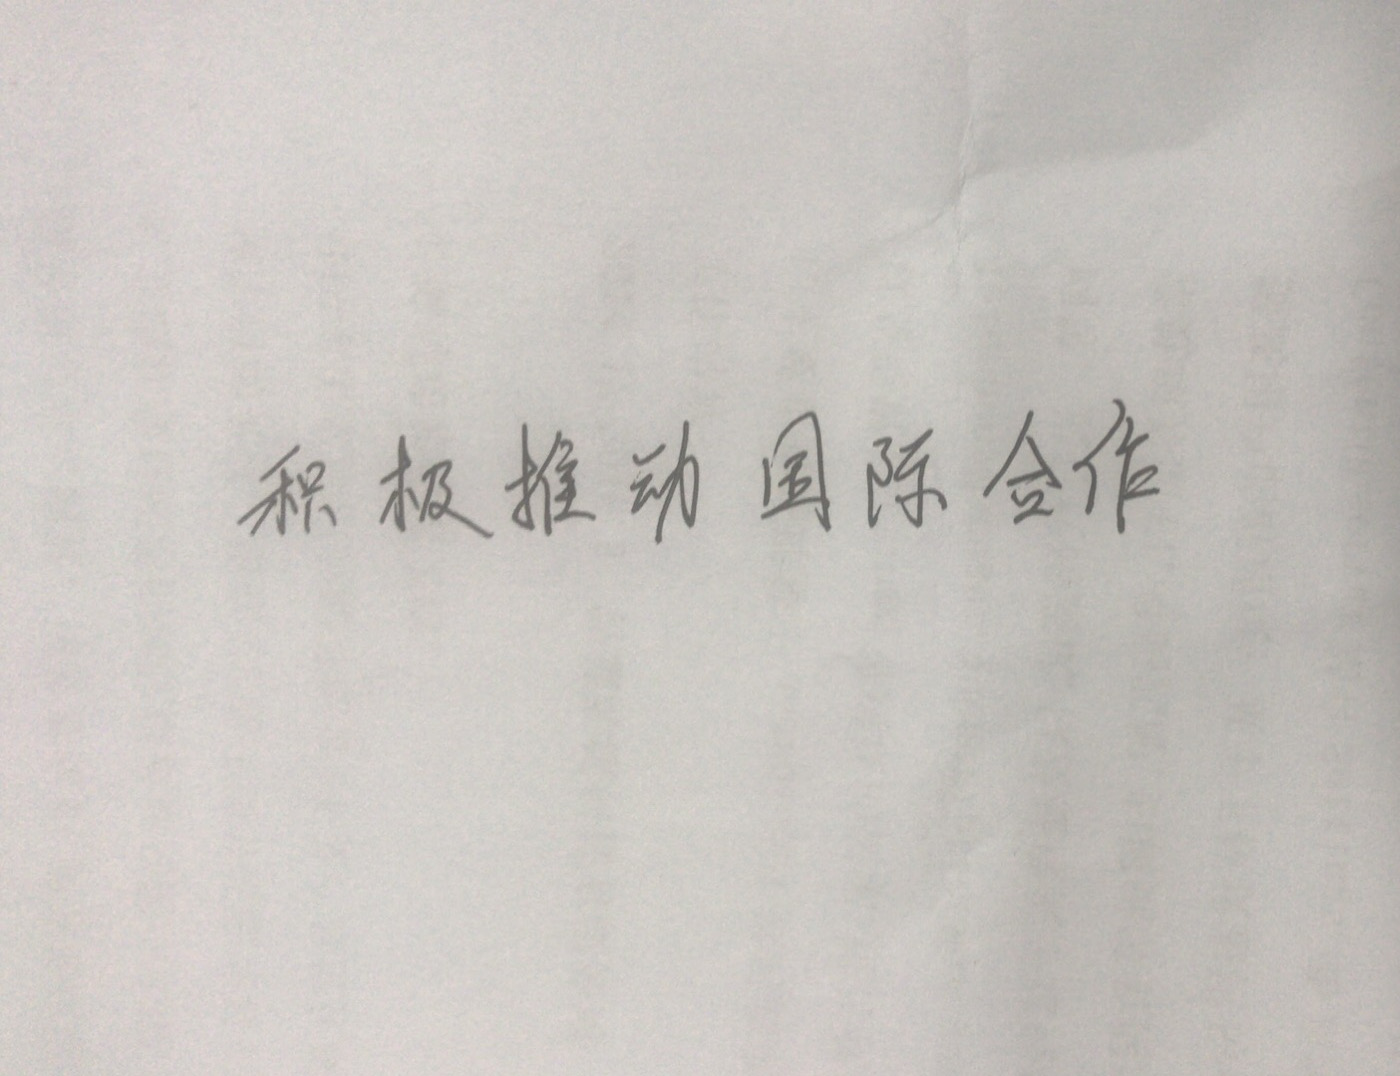 积极推动国际合作